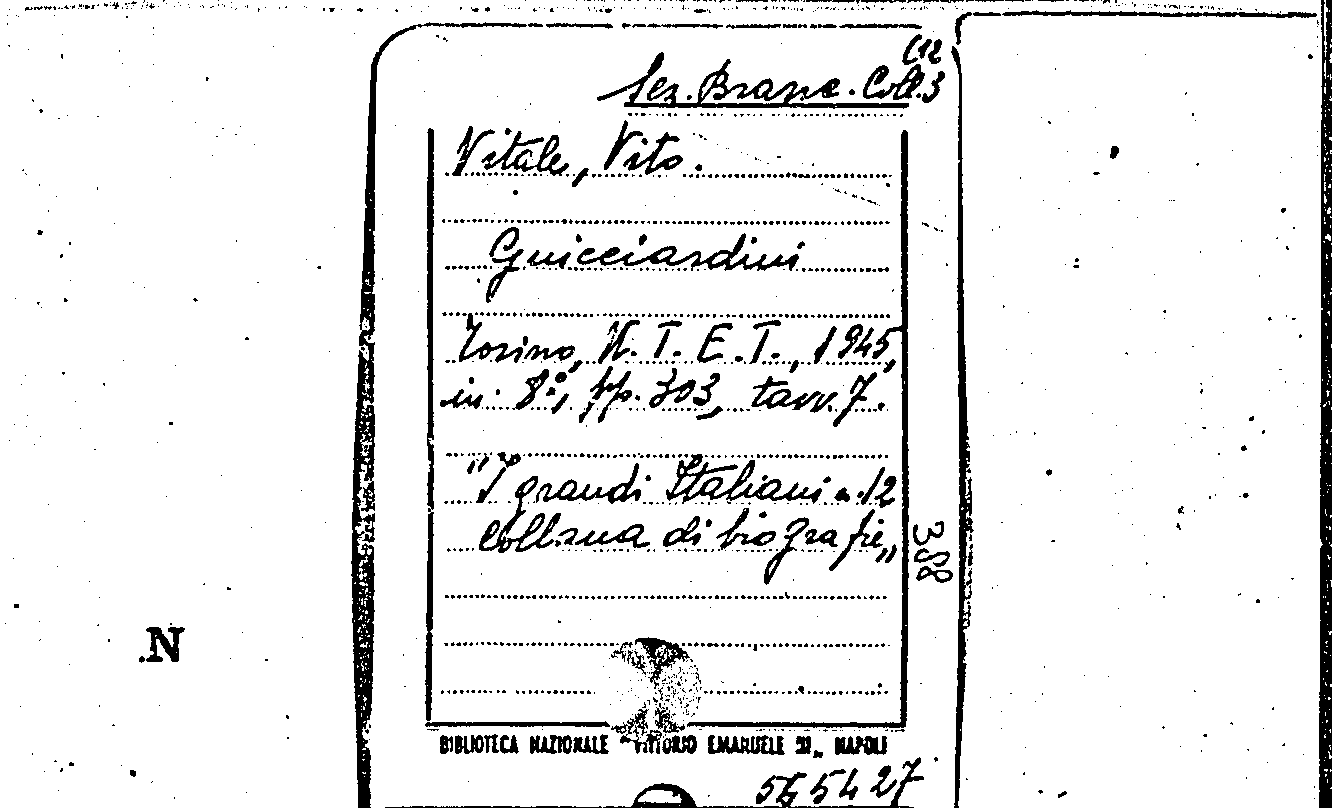 (12
Sez. Branc. Coll. 3
Vitale, Vito.
Guicciardini
Torino, U. T. E. T., 1945,
in 8°, pp. 303, tavv. 7.
"I grandi Italiani n. 12
Collana di biografie„
388
N
BIBLIOTECA NAZIONALE "VITTORIO EMANUELE III„ NAPOLI
565427